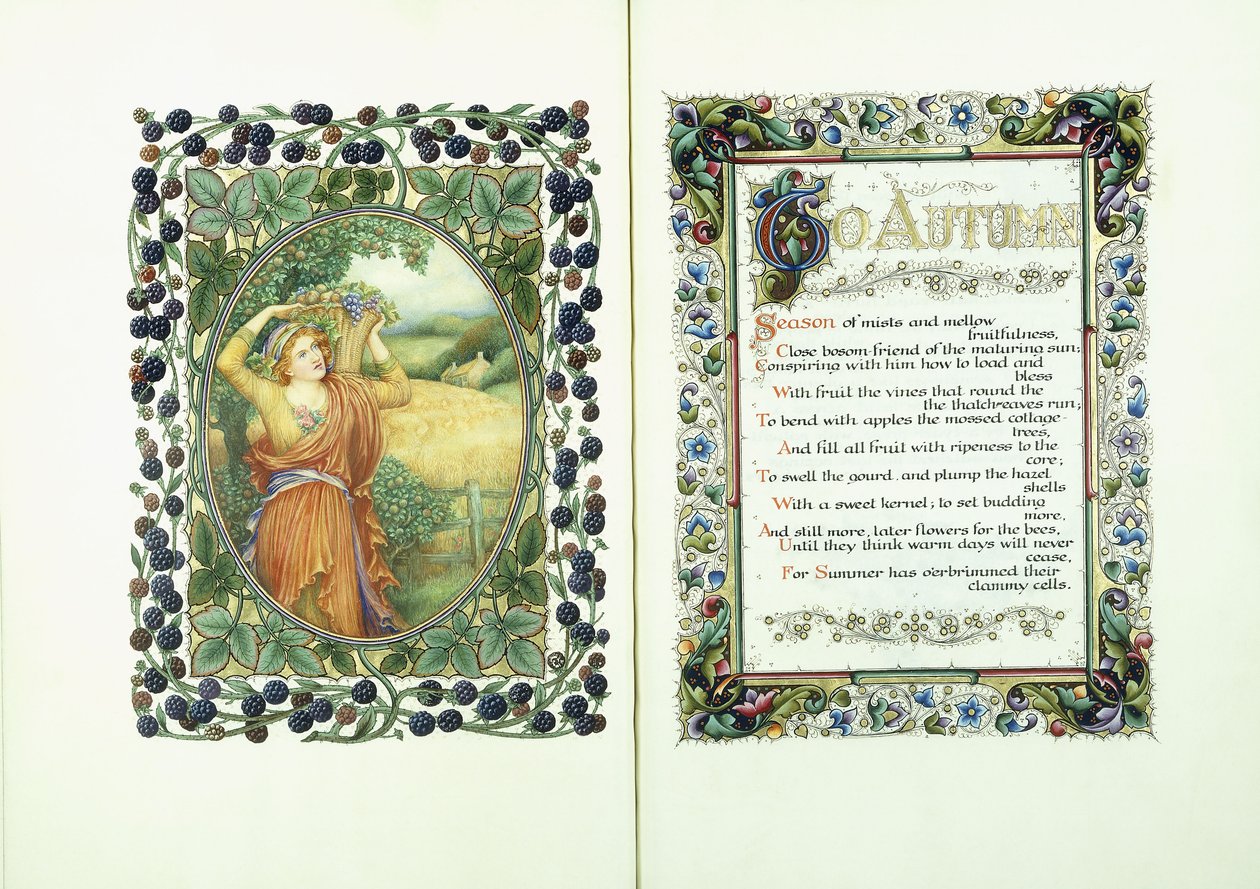 To Autumn
Season of mists and mellow
fruitfulness,
Close bosom-friend of the maturing sun;
Conspiring with him how to load and
bless
With fruit the vines that round the
the thatch-eaves run;
To bend with apples the mossed cottage-
trees,
And fill all fruit with ripeness to the
core;
To swell the gourd, and plump the hazel
shells
With a sweet kernel; to set budding
more,
And still more, later flowers for the bees,
Until they think warm days will never
cease,
For Summer has o'erbrimmed their
clammy cells.